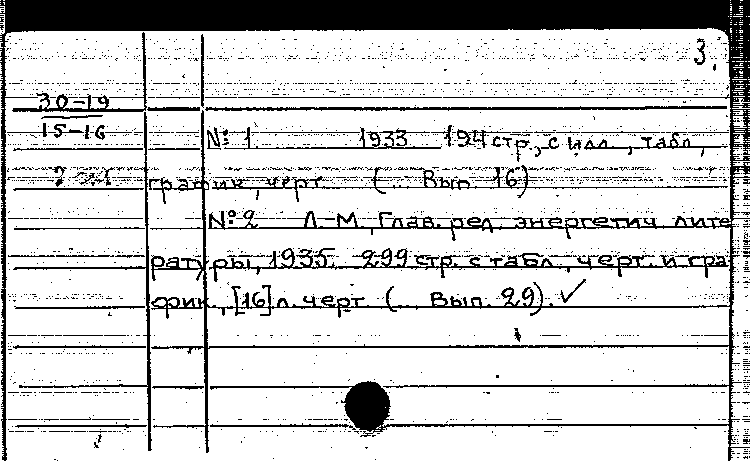 3.
30-19
15-16
№ 1 1933 194 стр., с илл., табл,
график, черт. (... Вып. 16)
№ 2 Л.-М., Глав. ред. энергетич. лите
ратуры, 1935. 299 стр. с табл., черт. и гра
фик., [16] л. черт. (... Вып. 29). ✓